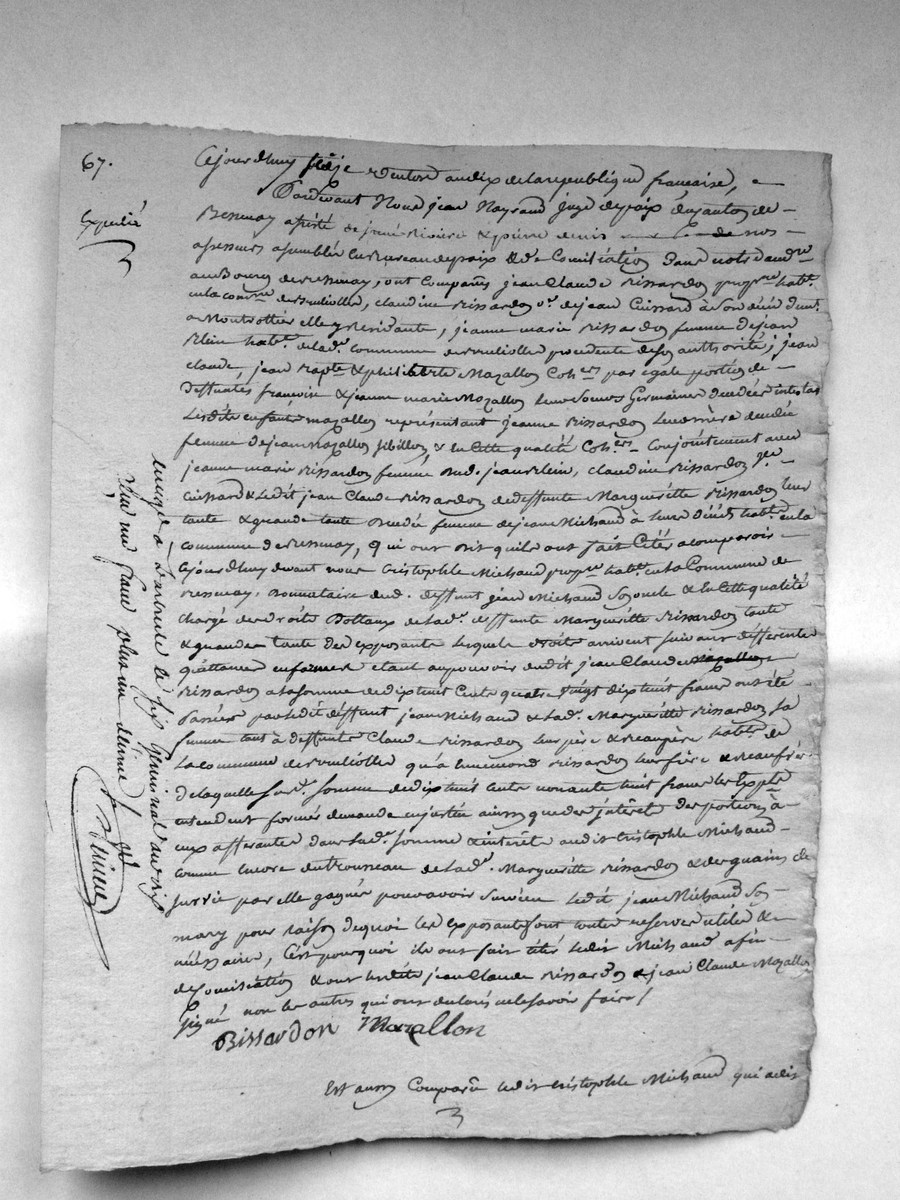 67.
Expédié
Cejourdhuy seize ventose an dix de la republique francaise,
Pardevant Nous jean Naysaud juge de paix du canton de
Bessenay assisté de & pierre denis de nos
assesseurs assemblés en Bureau de paix & de Conciliation dans notre
au Bourg de Bessenay, ont Comparus jean Claude Bissardon propre habt
en la comne de Brullioles, claudine Bissardon ve. de jean Cuissard à Son décès
a Montrottier elle y Residante, jeanne marie Bissardon femme de jean
Klein habt. de lad. commune de Brullioles procedente de Son authorité; jean
claude, jean bapte & philiberte Mazallon Cohers par égale portion de
deffuntes francoise & jeanne marie Mazallon leurs Soeurs Germaines decedées intestat
Lesdits enfants mazallon représentant jeanne Bissardon leur mère decedée
femme de jean Mazallon & en Cette qualité Cohers. Conjointement avec
jeanne marie Bissardon femme dud. jean Klein, claudine Bissardon ve
Cuissard & Ledit jean Claude Bissardon de deffunte Marguerite Bissardon leur
tante & grande tante Decedée femme de jean Michaud à leur décès habts. en la
commune de Bessenay, Qui ont Dit quils ont fait Citer a comparoir
Cejourdhuy devant nous Cristophle Michaud propre habt. en la Commune de
Bessenay, Donnataire dud. deffunt jean Michaud Son oncle & en Cette qualité
chargé des Droits Dottaux de lad. deffunte Marguerite Bissardon tante
& grande tante des exposants lesquels droits arrivent suivant différentes
quittances en forme étant au pouvoir dudit jean Claude
Bissardon a la somme de dix huit Cents quatre vingt dix huit francs ont été
Passées par Ledit deffunt jean Michaud & Lad. Marguerite Bissardon Sa
femme tant à deffunt Claude Bissardon leur père & Beaupère habt. de
La commune de Brullioles qu'à Enemond Bissardon leur frère & Beaufrère
de laquelle Sus. Somme de dix huit cents nonante huit francs les Expts
entendent former demande en justice ainsi que des jntérêts des portions à
eux afférantes dans lad. Somme & intérêts audit Cristophle Michaud
comme encore du trousseau de lad. Marguerite Bissardon & des gains de
Survie par elle gagnés pour avoir Survécu Ledit jean Michaud Son
mary pour raison de quoi les exposants font toutes reserves utiles &
nécessaires, C'est pourquoi ils ont fait Citer Ledit Michaud a fin
de Conciliation & ont Lesdits jean Claude Bissardon & jean Claude Mazallon
Signé non les autres qui ont déclaré ne le savoir faire/
Bissardon Mazallon
Est aussi Comparu ledit Cristophle Michaud qui a dit
enregé a Larbresle le six Germinal an dix
Reçu un franc plus un décime